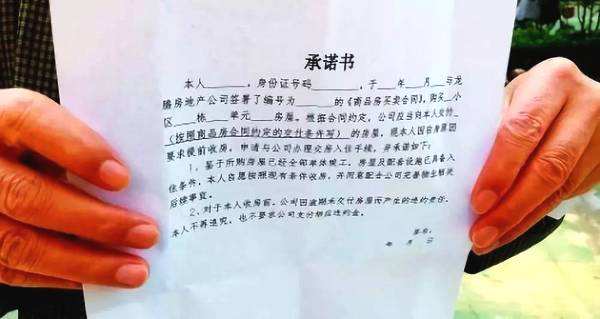 承诺书
本人____，身份证号码______，于___年___月___与龙
腾房地产公司签署了编号为______的《商品房买卖合同》，购买__小
区____栋____单元____房屋。根据合同约定，公司应当向本人交付_
（按照商品房合同约定的交付条件写）的房屋，现本人因自身原因
要求提前收房，申请与公司办理交房入住手续，并承诺如下：
1、鉴于所购房屋已经全部单体竣工，房屋及配套设施已具备入
住条件，本人自愿按照现有条件收房，并同意配合公司完善物业相关
后续事宜。
2、对于本人收房前，公司因逾期未交付房屋而产生的违约责任，
本人不再追究，也不要求公司支付相应违约金。
签名：
年 月 日